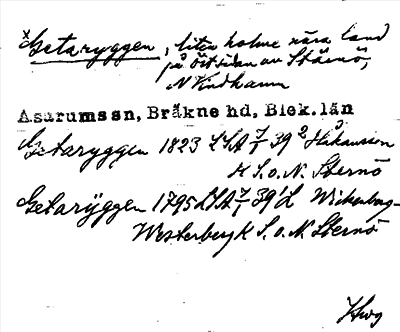 x Getaryggen, liten holme nära land
på östsidan av Stärnö,
N Vindhamn
Asarums sn, Bräkne hd, Blek. län
Getaryggen 1823 LSA 7/1 39 2 Håkansson
K S. o. N. Sternö
Getarÿggen 1795 LSA 7/1 39 1 L Wickenberg-
Westerberg K S. o. N. Sternö
Hwg